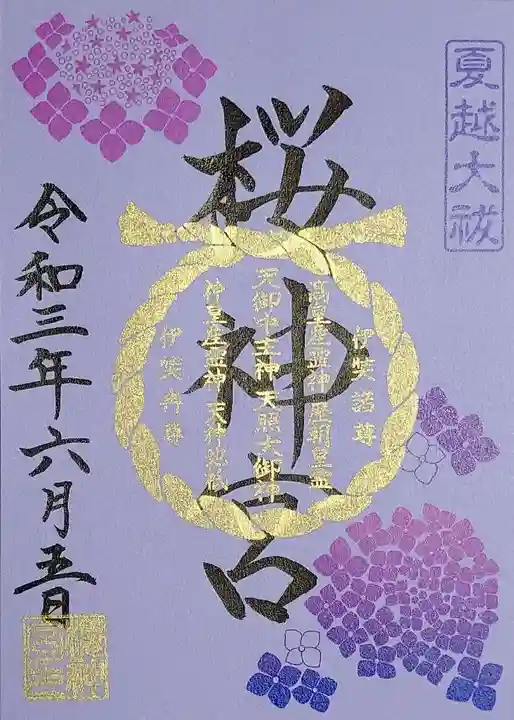 夏越大祓
桜神宮
伊弉諾尊
高皇産霊神 歴朝皇霊
天御中主神 天照大御神
神皇産霊神 天神地祇
伊弉冉尊
令和三年六月五日